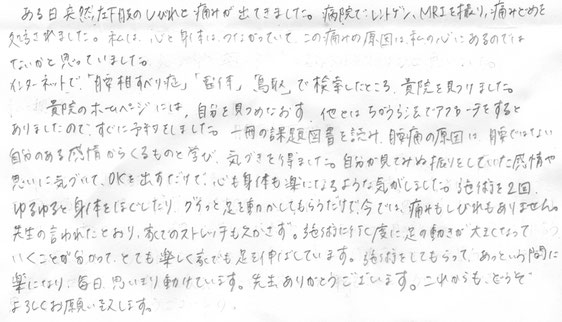 ある日突然、左下肢のしびれと痛みが出てきました。病院でレントゲン、MRIを撮り、痛みどめを
処方されました。私は、心と身体はつながっていて、この痛みの原因は私の心にあるのでは
ないかと思っていました。
インターネットで、「腰椎すべり症」「整体」「鳥取」で検索したところ、貴院を見つけました。
貴院のホームページには、自分を見つめなおす、他とはちがう方法でアプローチをすると
ありましたので、すぐに予約をしました。一冊の課題図書を読み、腰痛の原因は、腰ではない
自分のある感情からくるものと学び、気づきを得ました。自分が見てみぬ振りをしていた感情や
思いに気づいて、OKを出すだけで、心も身体も楽になるような気がしました。施術を2回、
ゆるゆると身体をほぐしたり、グーっと足を動かしてもらうだけで、今では、痛みもしびれもありません。
先生の言われたとおり、家でのストレッチも欠かさず。施術に行く度に足の動きが大きくなって
いくことが分かって、とても楽しく家でも足を伸ばしています。施術をしてもらって、あっという間に
楽になり、毎日、思いきり動けています。先生、ありがとうございます。これからも、どうぞ
よろしくお願いします。